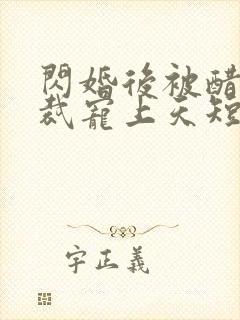 閃婚後被醋
裁寵上天短
字正義